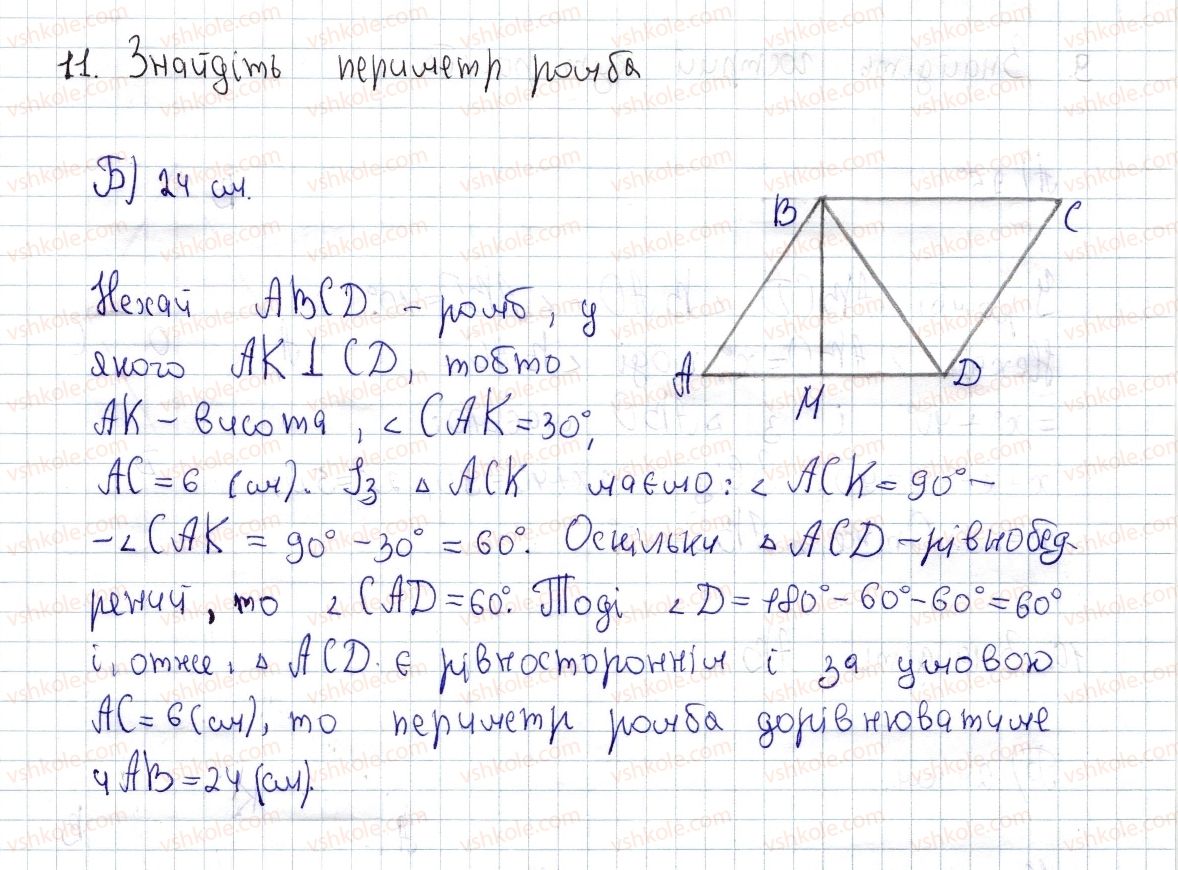 11. Знайдіть периметр ромба
Б) 24 см.
B
C
A
M
D
Нехай ABCD - ромб, у
якого AK⊥CD, тобто
AK - висота, ∠CAK = 30°,
AC = 6 (см). Із △ ACK маємо: ∠ ACK = 90° -
- ∠CAK = 90° - 30° = 60°. Оскільки △ ACD - рівнобед-
рений, то ∠CAD = 60°. Тоді ∠D = 180° - 60° - 60° = 60°
і, отже, △ ACD є рівностороннім і за умовою
AC = 6 (см), то периметр ромба дорівнюватиме
4AB = 24 (см).